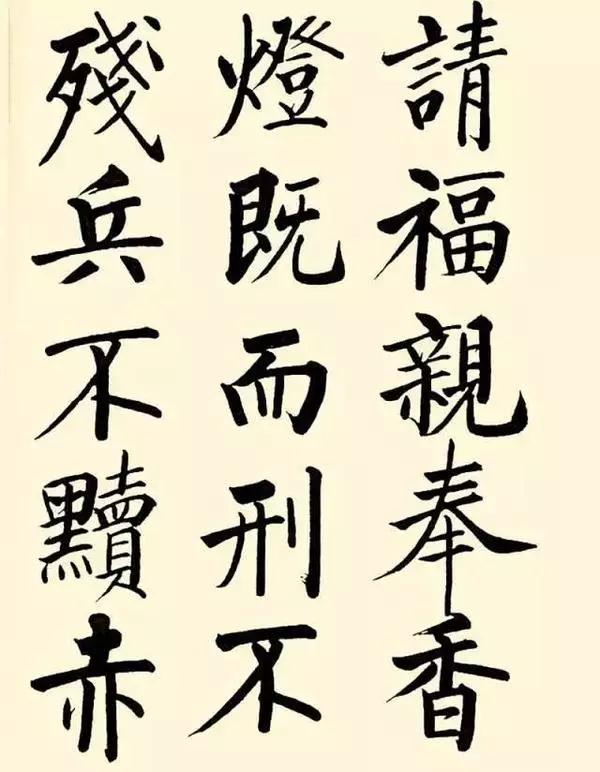 請福親奉香
燈既而刑不
殘兵不黷赤